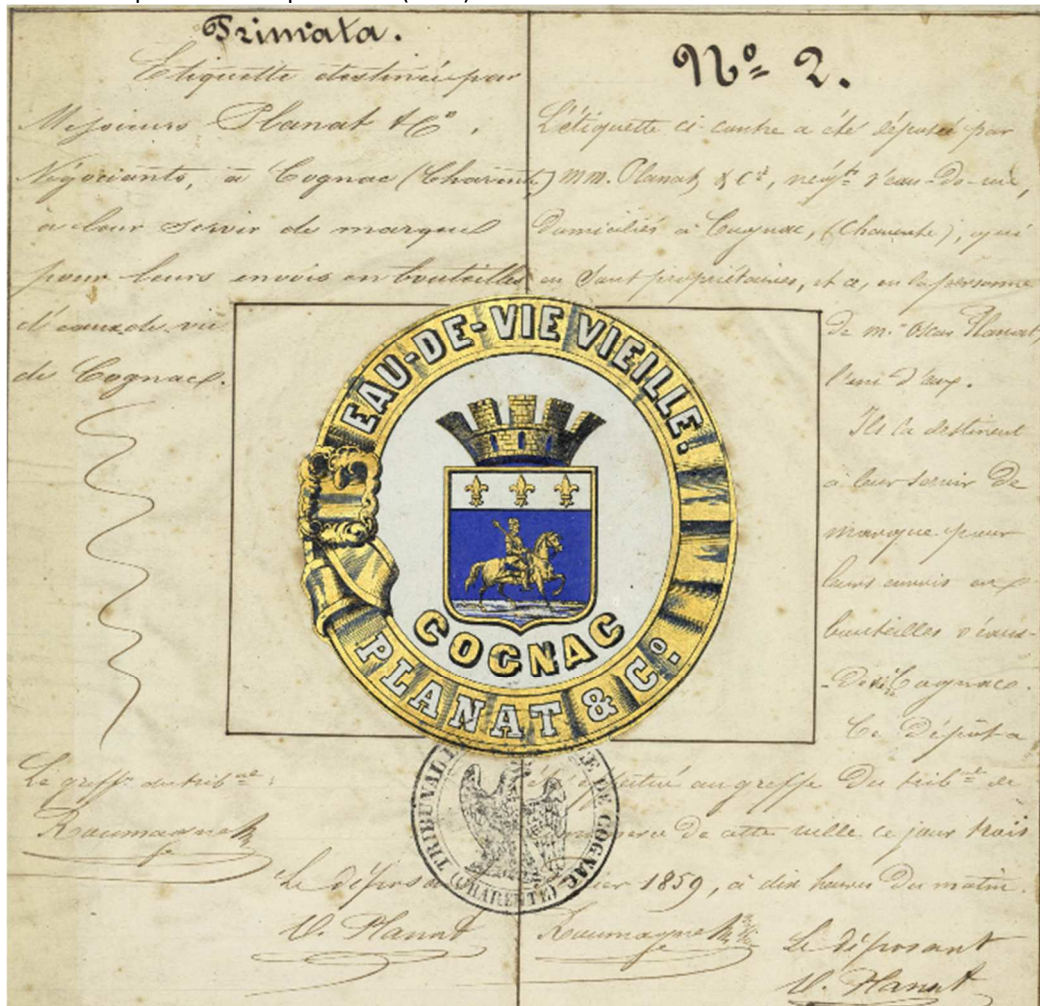 Primata.
Etiquette destinée par
Messieurs Planat & Cº,
Négociants, à Cognac (Charente)
à leur servir de marque
pour leurs envois en bouteilles
d'eaux de vie
de Cognac.
Le greff. du tribal:
Le déposant
O. Planat
Nº 2.
L'étiquette ci-contre a été déposée par
MM. Planat & Cie, négts d'eau-de-vie,
domiciliés à Cognac, (Charente), qui
en sont propriétaires, et ce, en la personne
de M. Oscar Planat,
l'un d'eux.
Ils la destinent
à leur servir de
marque pour
leurs envois en
bouteilles d'eaux-
-de-vie Cognac.
Ce dépôt a
été effectué au greffe du tribal de
commerce de cette ville ce jour trois
1859, à dix heures du matin.
Le déposant
O. Planat
EAU-DE-VIE VIEILLE.
COGNAC
PLANAT & Cº.
TRIBUNAL DE COGNAC
(CHARENTE)